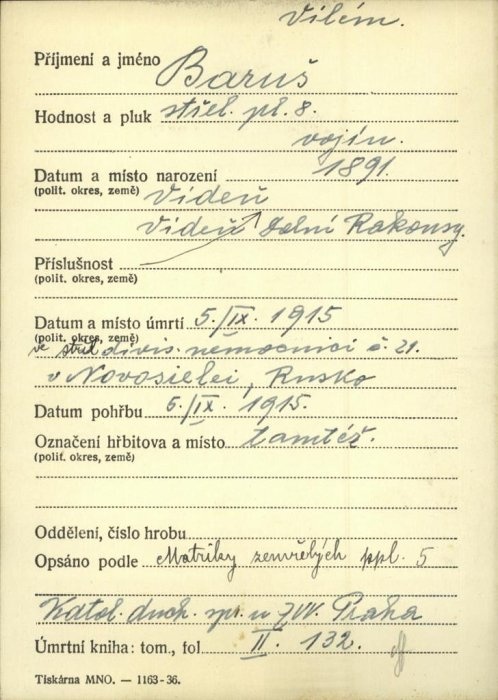 Vilém.
Příjmení a jméno Baruš
Hodnost a pluk střel. pl. 8.
vojín.
Datum a místo narození 1891.
(polit. okres, země) Vídeň
Vídeň Dolní Rakousy.
Příslušnost
(polit. okres, země)
Datum a místo úmrtí 5./IX. 1915
(polit. okres, země)
ve střel. divis. nemocnici č. 21.
v Novosielei, Rusko
Datum pohřbu 5./IX. 1915.
Označení hřbitova a místo tamtéž.
(polit. okres, země)
Oddělení, číslo hrobu
Opsáno podle Matriky zemřelých ppl. 5
Katol. duch. spr. u ZVV. Praha
Úmrtní kniha: tom., fol II. 132.
Tiskárna MNO. — 1163-36.